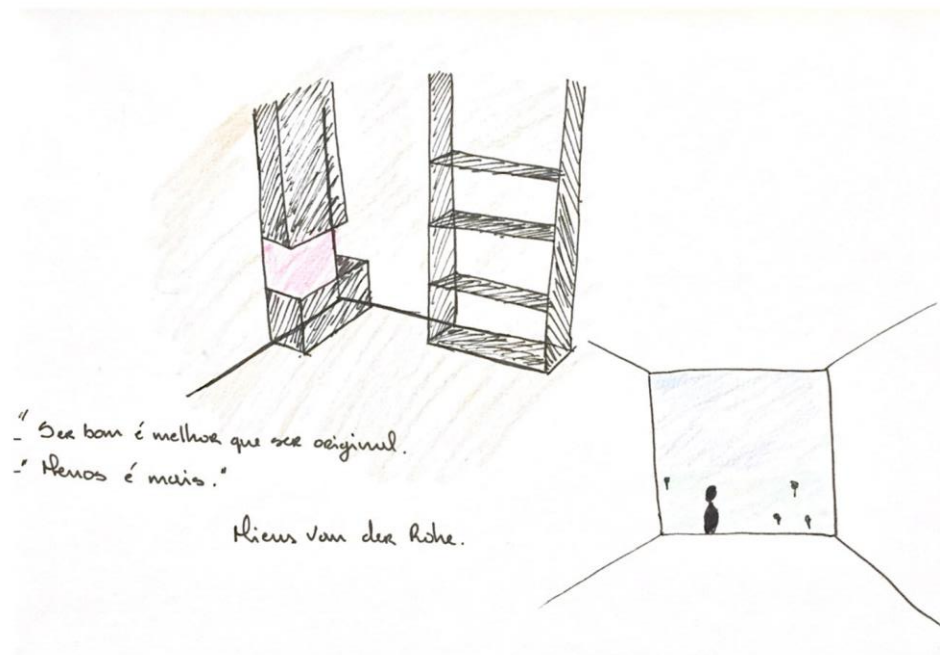 - "Ser bom é melhor que ser original.
- "Menos é mais."
Mieus van der Rohe.